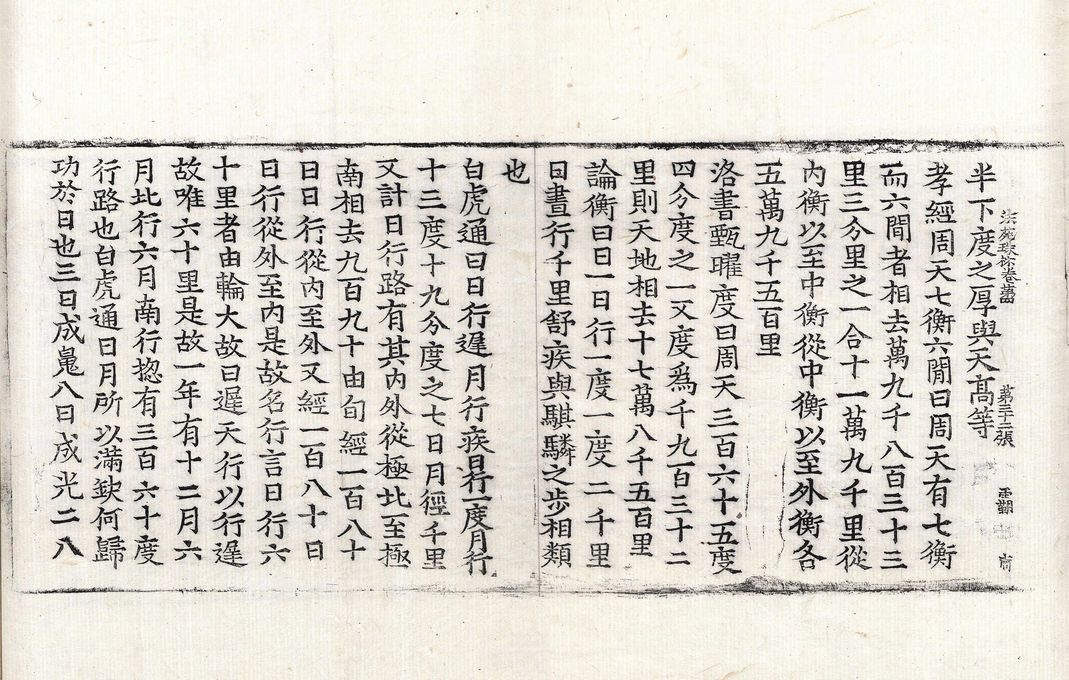 半下度之厚與天髙等
法苑珠林卷苐四 苐三十二張 霜
孝經周天七衡六閒曰周天有七衡
而六閒者相去萬九千八百三十三
里三分里之一合十一萬九千里從
內衡以至中衡從中衡以至外衡各
五萬九千五百里
洛書甄曜度曰周天三百六十五度
四分度之一又度爲千九百三十二
里則天地相去十七萬八千五百里
論衡曰日一日行一度一度二千里
日晝行千里舒疾與騏驎之步相類
也
白虎通曰日行遲月行疾日行一度月行
十三度十九分度之七日月徑千里
又計日行路有其內外從極北至極
南相去九百九十由旬經一百八十
日日行從內至外又經一百八十日
日行從外至內是故名行言日行六
十里者由輪大故曰遲天行以行遲
故唯六十里是故一年有十二月六
月北行六月南行揔有三百六十度
行路也白虎通曰月所以滿缺何歸
功於日也三日成鬼八日成光二八